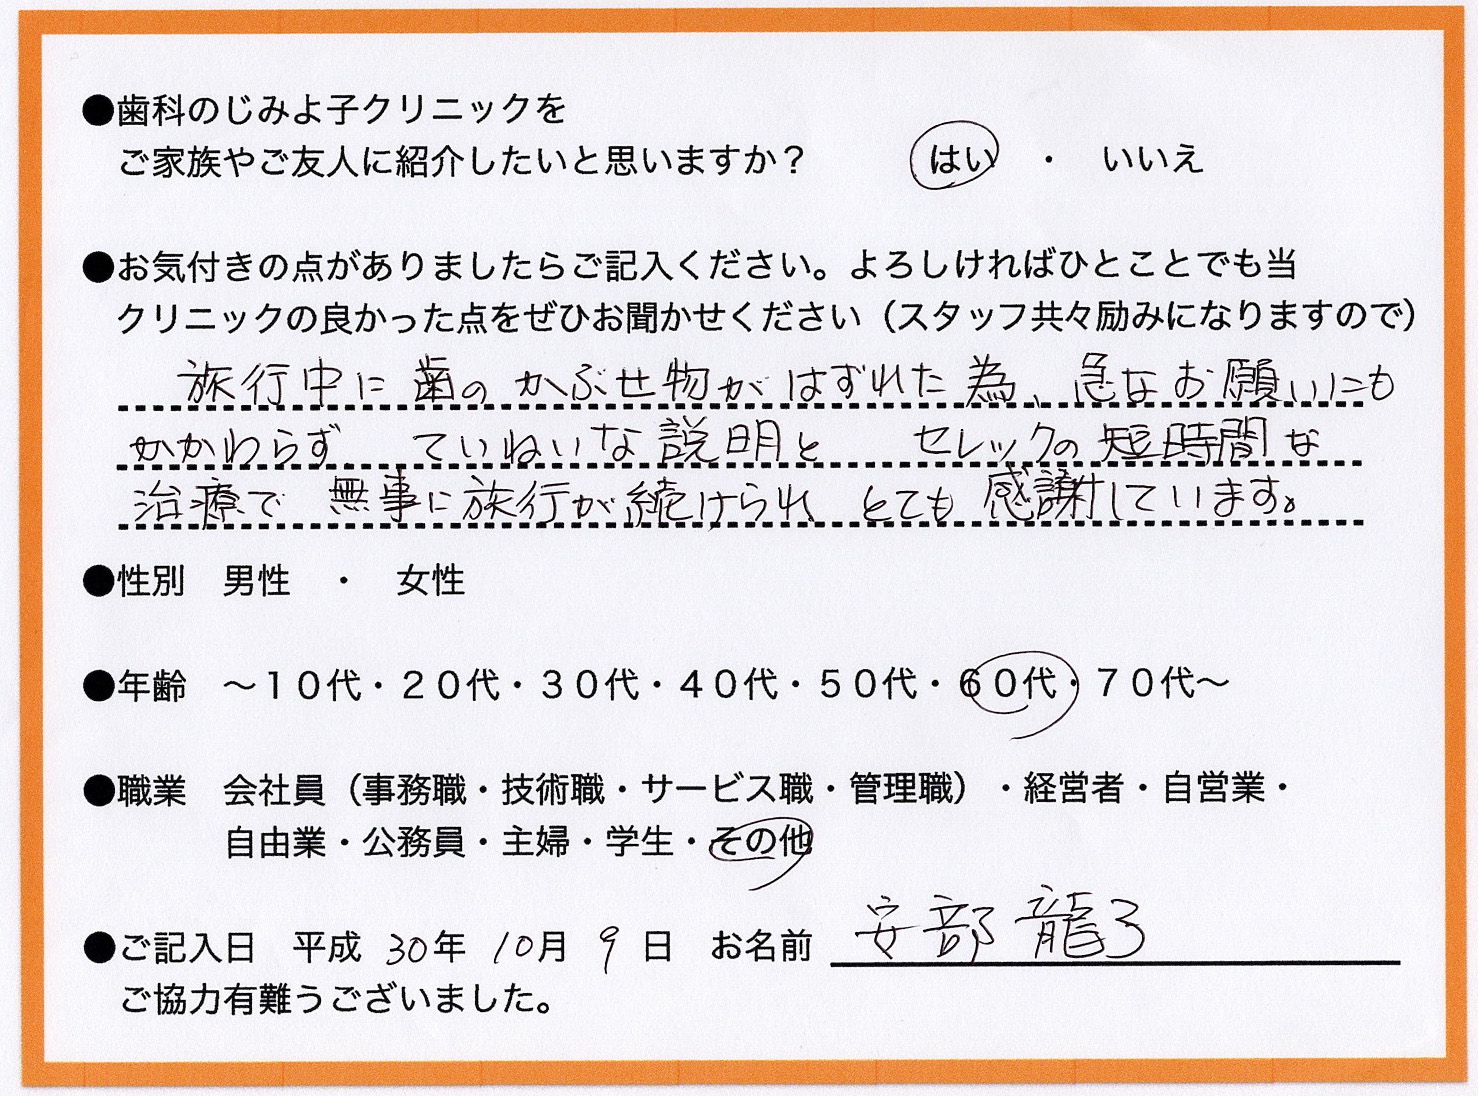 ●歯科のじみよ子クリニックを
ご家族やご友人に紹介したいと思いますか？　はい ・ いいえ
●お気付きの点がありましたらご記入ください。よろしければひとことでも当
クリニックの良かった点をぜひお聞かせください（スタッフ共々励みになりますので）
旅行中に歯のかぶせ物がはずれた為、急なお願いにも
かかわらず ていねいな説明と セレックの短時間な
治療で 無事に旅行が続けられ とても感謝しています。
●性別　男性　・　女性
●年齢　～１０代・２０代・３０代・４０代・５０代・６０代・７０代～
●職業　会社員（事務職・技術職・サービス職・管理職）・経営者・自営業・
自由業・公務員・主婦・学生・その他
●ご記入日　平成 30年 10月 9日　お名前 安部 龍子
ご協力有難うございました。